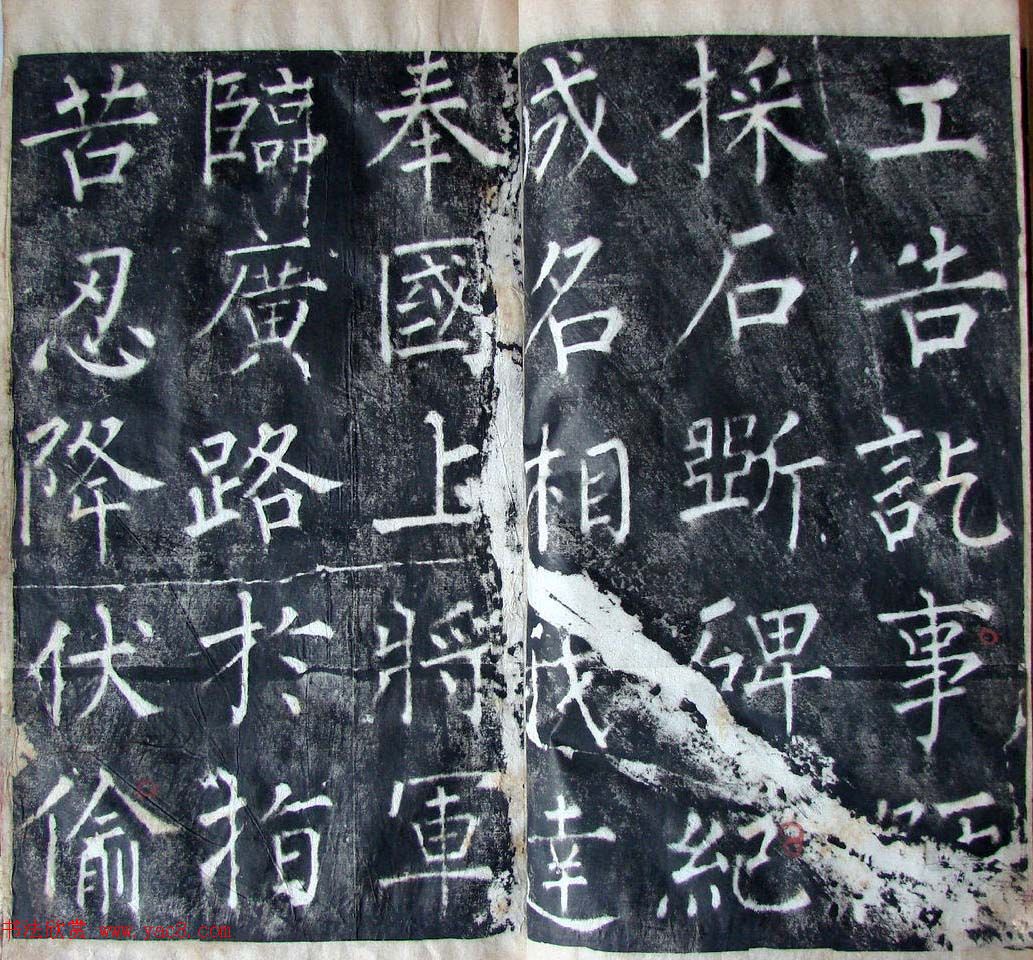 工告訖事
採石斲碑紀
成名相我達
奉國上將軍
臨廣路於指
苦忍降伏偷
书法欣赏 www.yac8.com